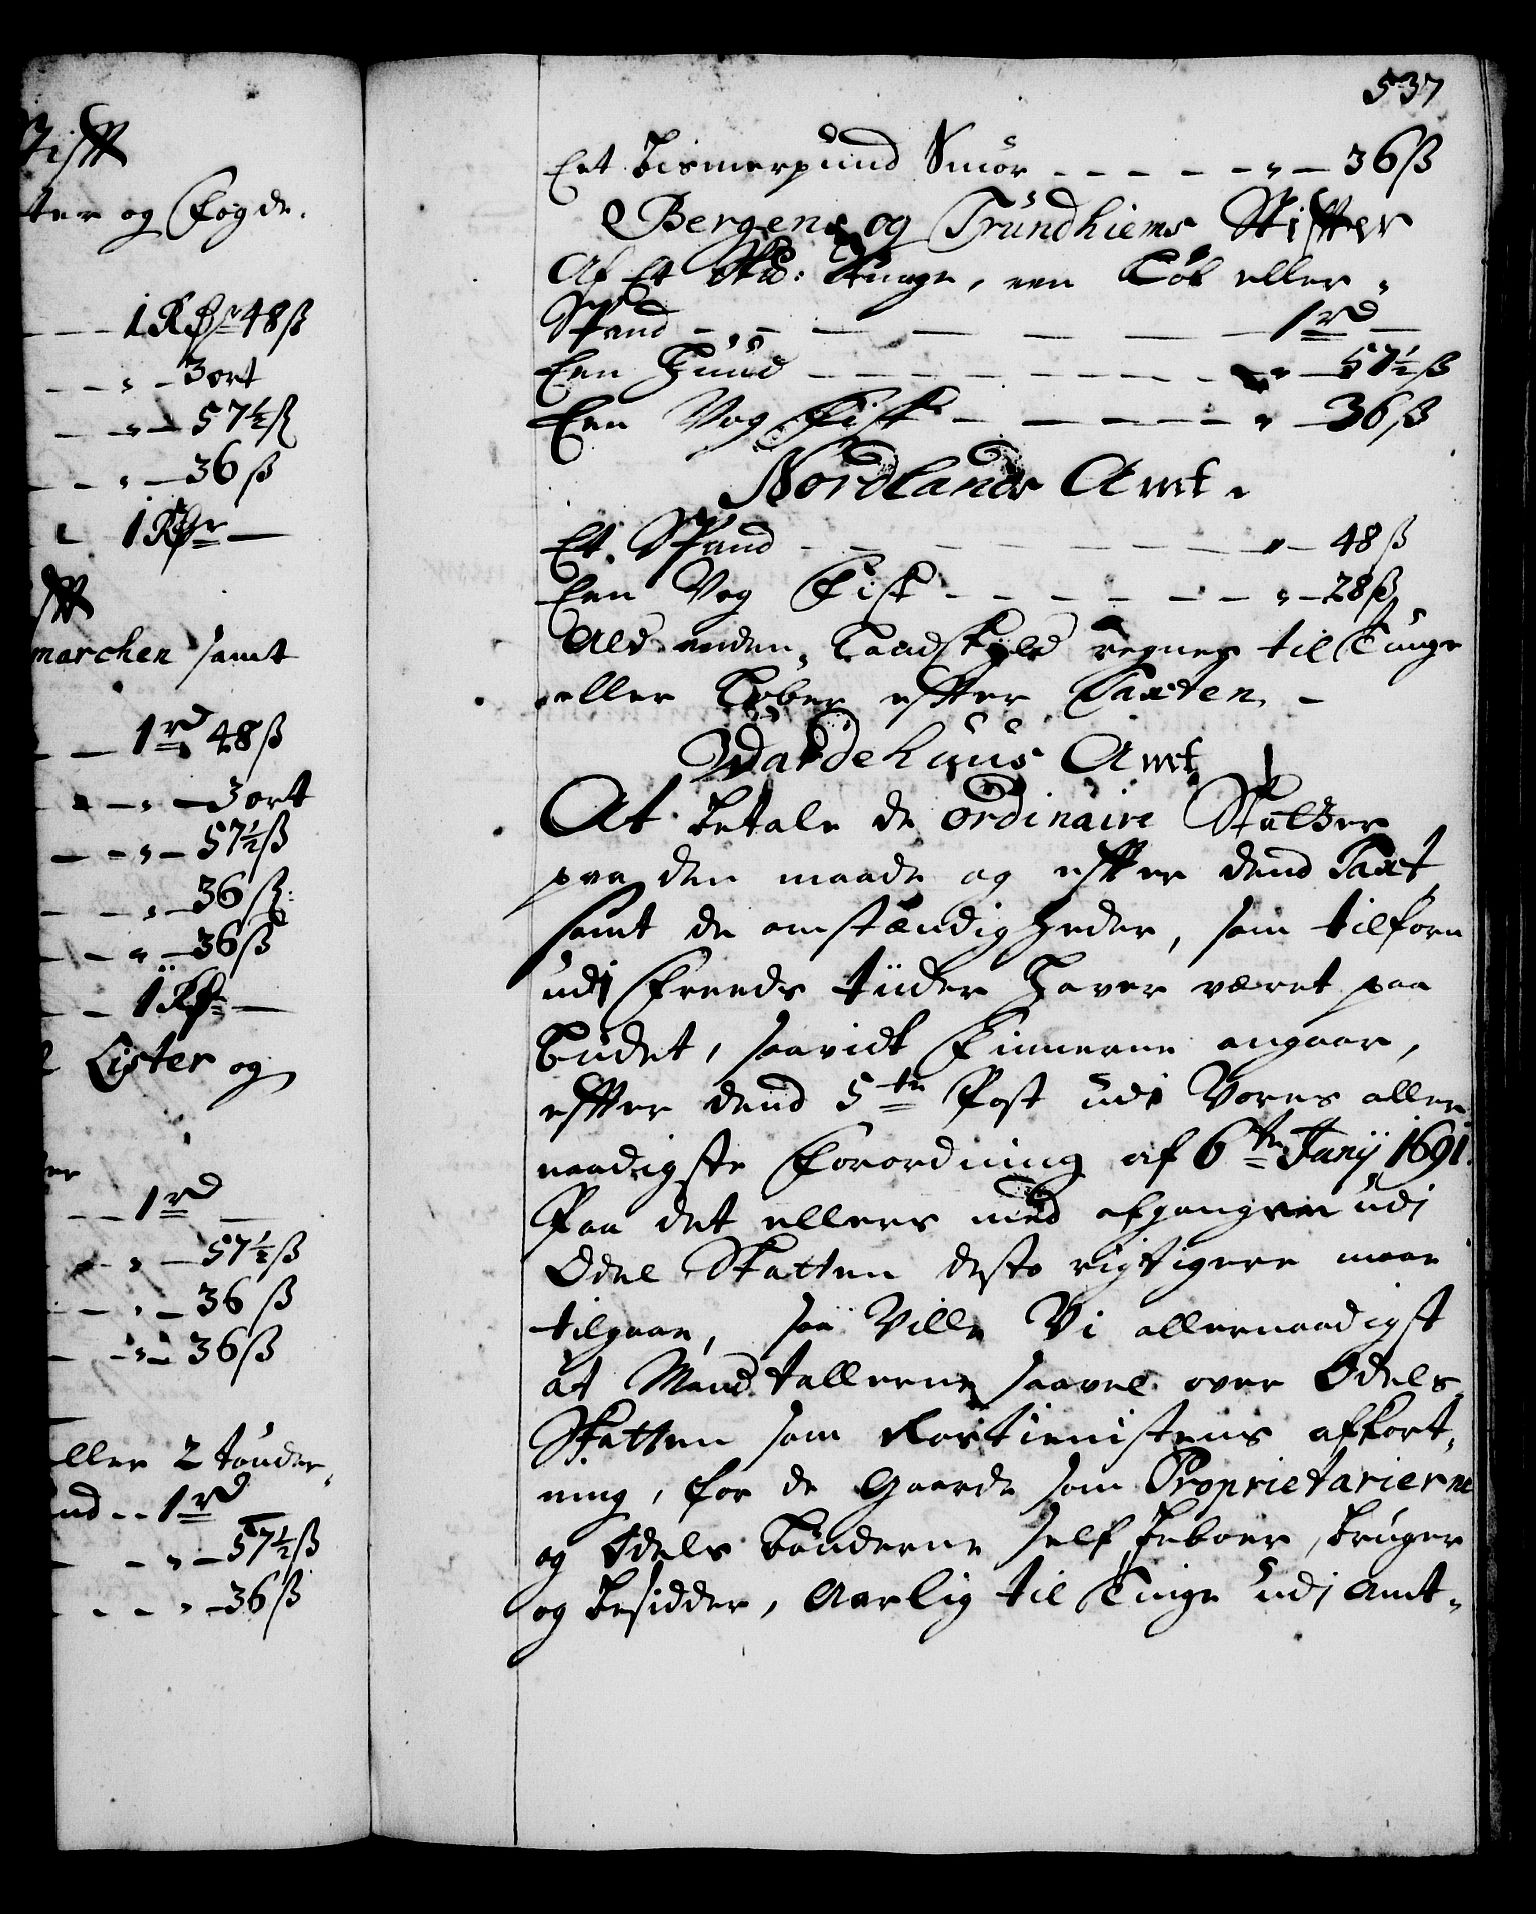 Stifft
ter og Fogde.
— — 1 Rdr 48 ß
— — „ — 3 ort
— „ — 57½ ß
— „ — 36 ß
1 Rdr —
marchen samt
— 1 rd 48 ß
— „ — 3 ort
— — „ — 57½ ß
— „ — 36 ß:
— „ — 36 ß
— — 1 Rdr —
Lister og
— — 1 rd —
— „ — 57½ ß
— „ — 36 ß
— „ — 36 ß
eller 2 tønder
und - - 1 rd —
— „ — 57½ ß
- - - „ — 36 ß
537
Eet Bismerpund Smør - - - - - „ — 36 ß
Bergens og Trundhiems Stiffter
Af Et Skd: Tunge, een Løb eller
Spand - - — — — — 1 rd —
Een Huud - - - - - - - - „ — 57½ ß
Een Vog Fisk - — — — — „ — 36 ß
Nordlands Amt.
Et Spand - - — — — — „ — 48 ß
Een Vog Fisk - - - - — — „ — 28 ß
Ald anden Landskyld regnes til Tunge
eller Løber effter Taxten. -
Wardehuus Amt
At betale de ordinaire Skatter
paa den maade og effter dend Taxt
samt de omstændigheder, som tilforn
udj Freeds tiider haver været paa
budet, saavidt Finnerne angaar,
effter dend 5te Post udi Vores aller
naadigste Forordning af 6te Junij 1691.
Paa det ellers med afgangen udj
Odel Skatten desto rigtigere maae
tilgaae, saa Ville Vi allernaadigst
at Mand tallerne saavel over Odels
Skatten som Rostienistens affkort-
ning, for de Gaarde som Proprietarierne
og Odels bønderne self beboer, bruger
og besidder, Aarlig til Tinge udj Amt-